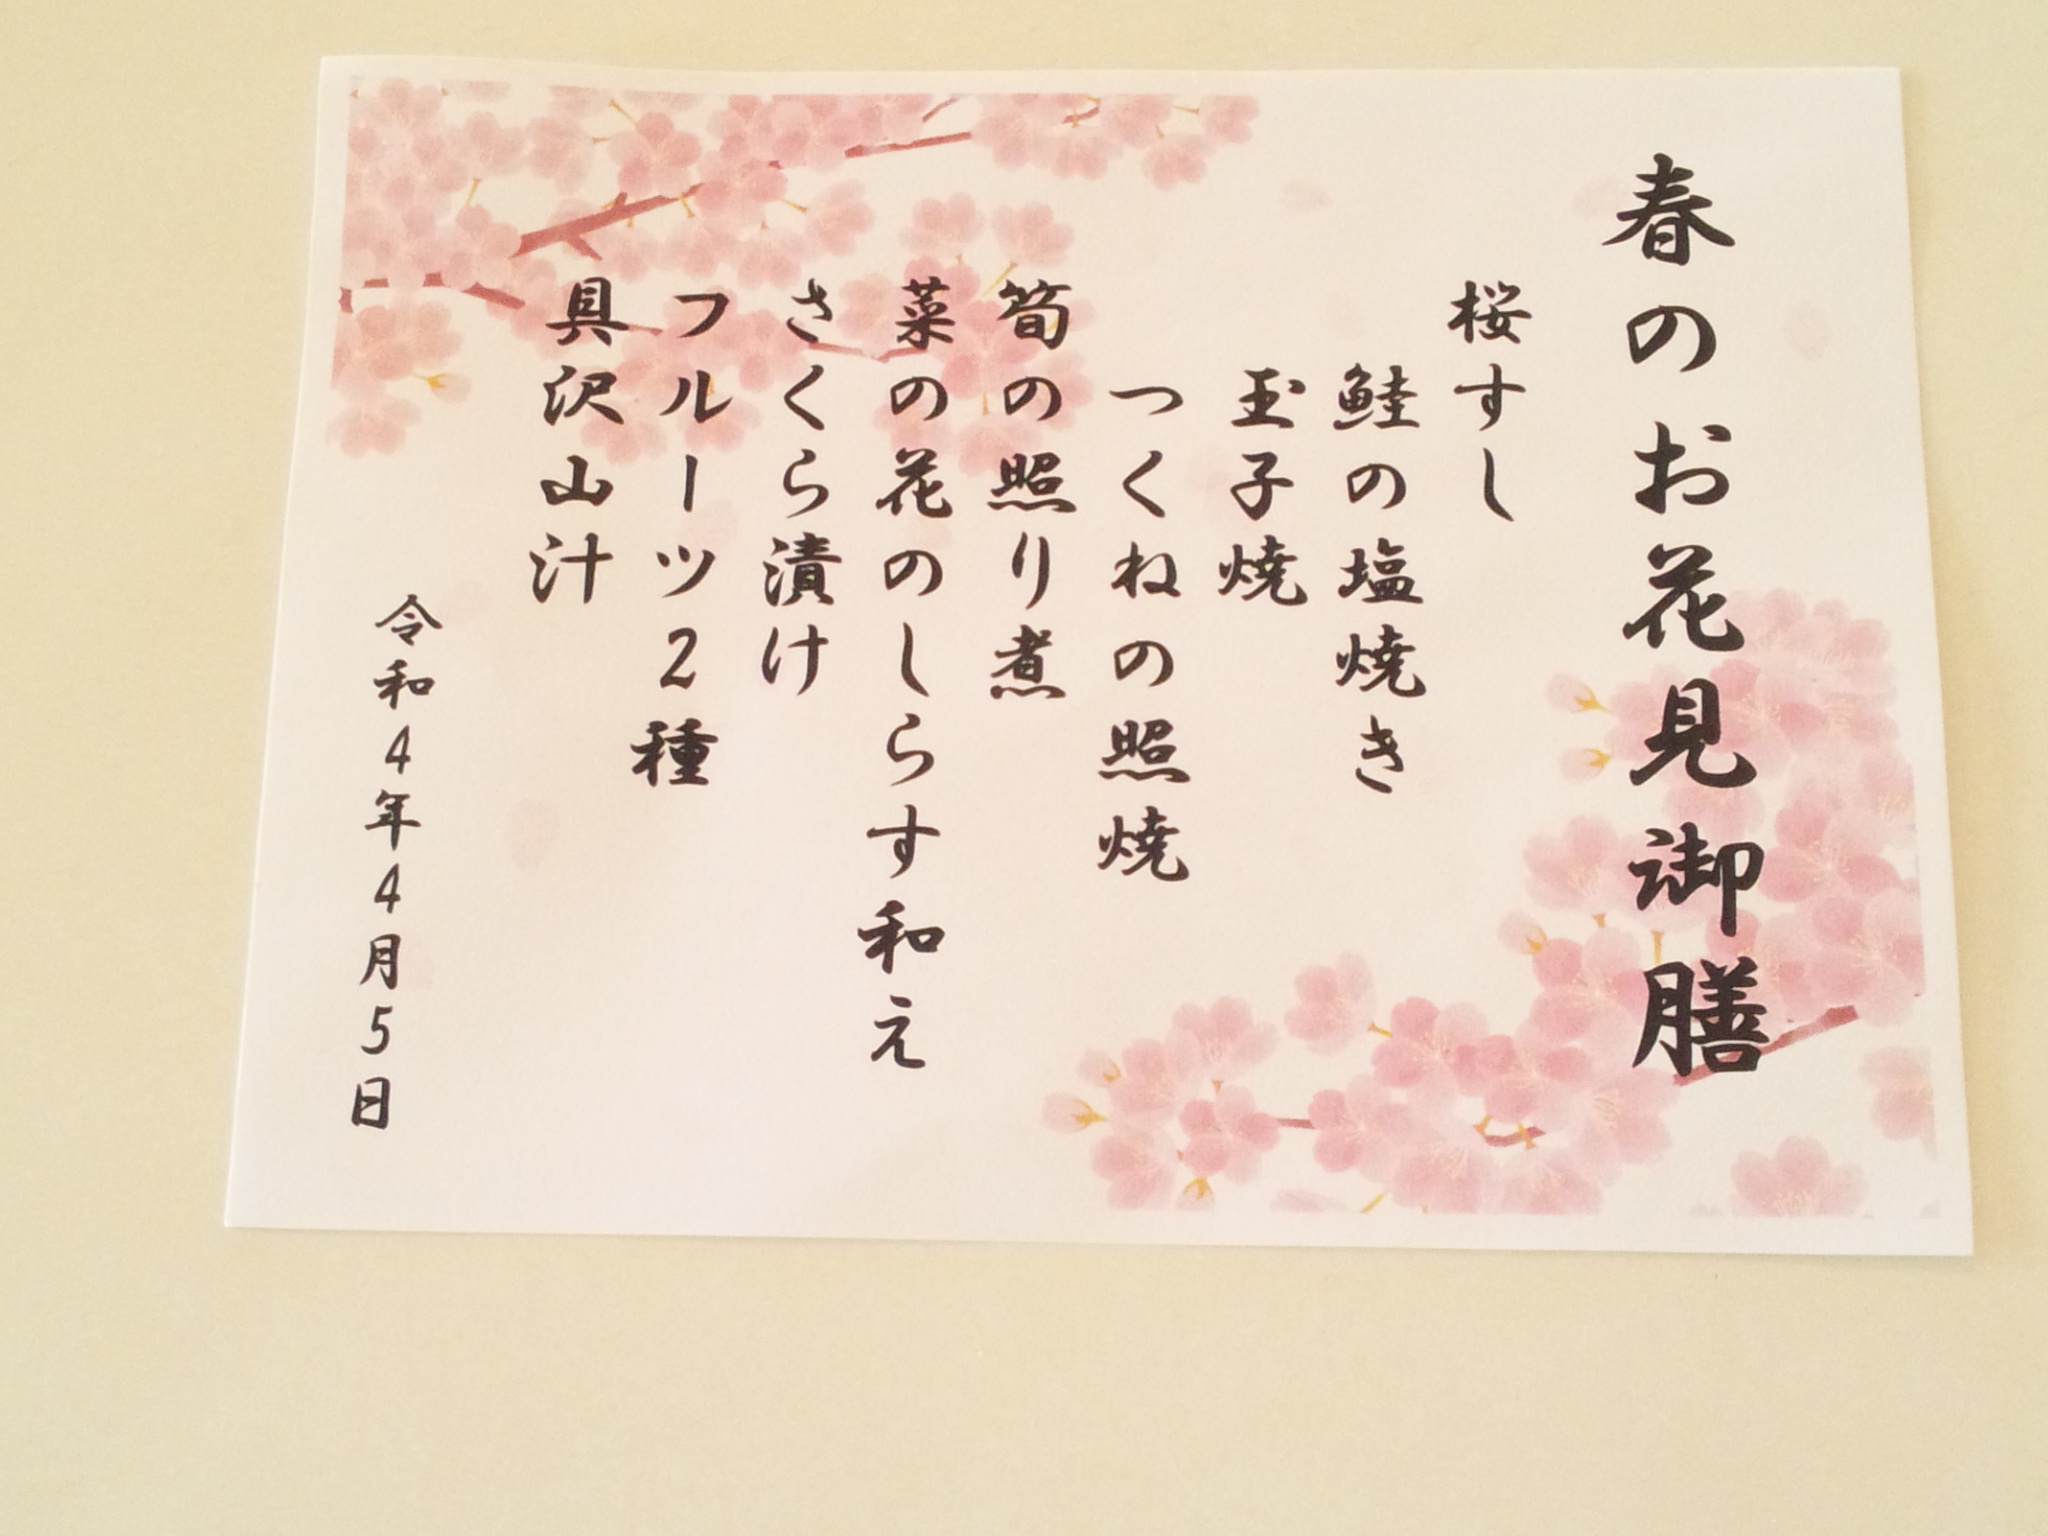 春のお花見御膳
桜すし
鮭の塩焼き
玉子焼
つくねの照焼
筍の照り煮
菜の花のしらす和え
さくら漬け
フルーツ2種
具沢山汁
令和4年4月5日